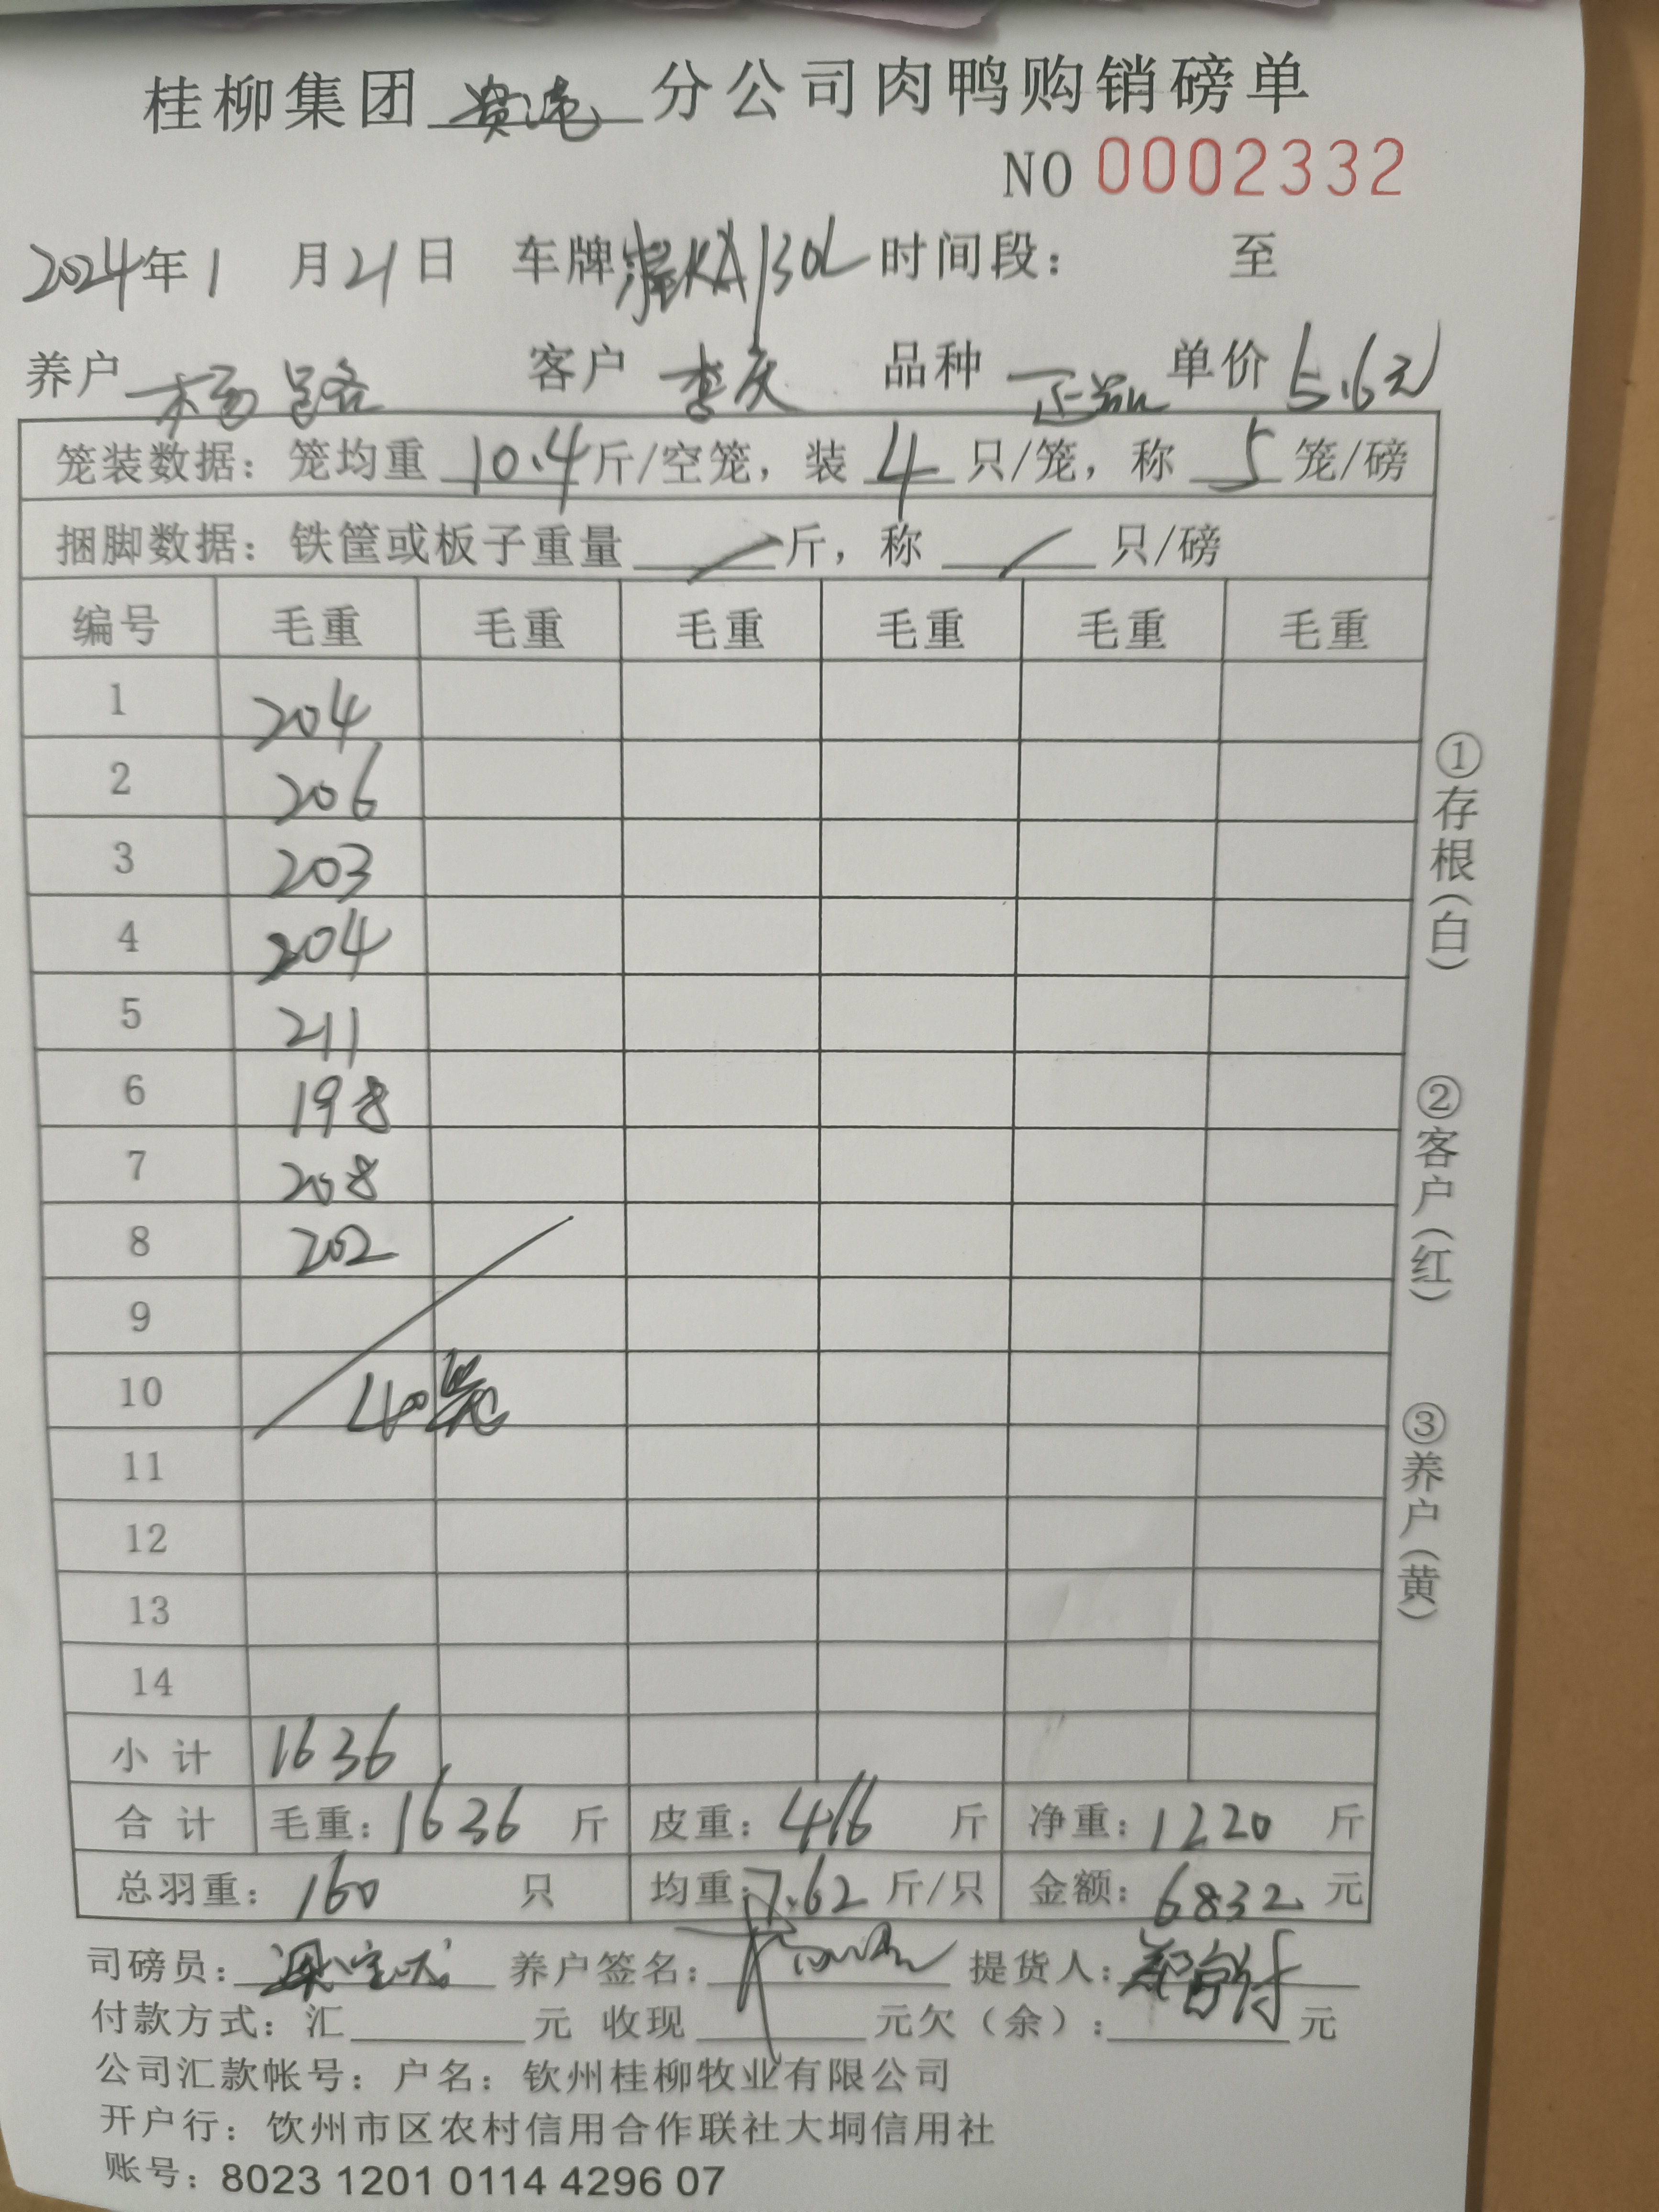 桂柳集团贵港分公司肉鸭购销磅单
NO 0002332
2024年1月21日 车牌桂KA130L 时间段： 至
养户 杨 客户 李庆 品种 正品 单价 5.6元
笼装数据：笼均重 10.4 斤/空笼，装 4 只/笼，称 5 笼/磅
捆脚数据：铁筐或板子重量 / 斤，称 / 只/磅
编号 毛重 毛重 毛重 毛重 毛重 毛重
1 204
2 206
3 203
4 204
5 211
6 198
7 208
8 202
9
10 40笼
11
12
13
14
小计 1636
合计 毛重：1636 斤 皮重：416 斤 净重：1220 斤
总羽重：160 只 均重：7.62 斤/只 金额：6832 元
司磅员： 养户签名： 提货人：
付款方式：汇 元 收现 元欠（余）： 元
公司汇款帐号：户名：钦州桂柳牧业有限公司
开户行：饮州市区农村信用合作联社大垌信用社
账号：8023 1201 0114 4296 07
①存根（白）
②客户（红）
③养户（黄）